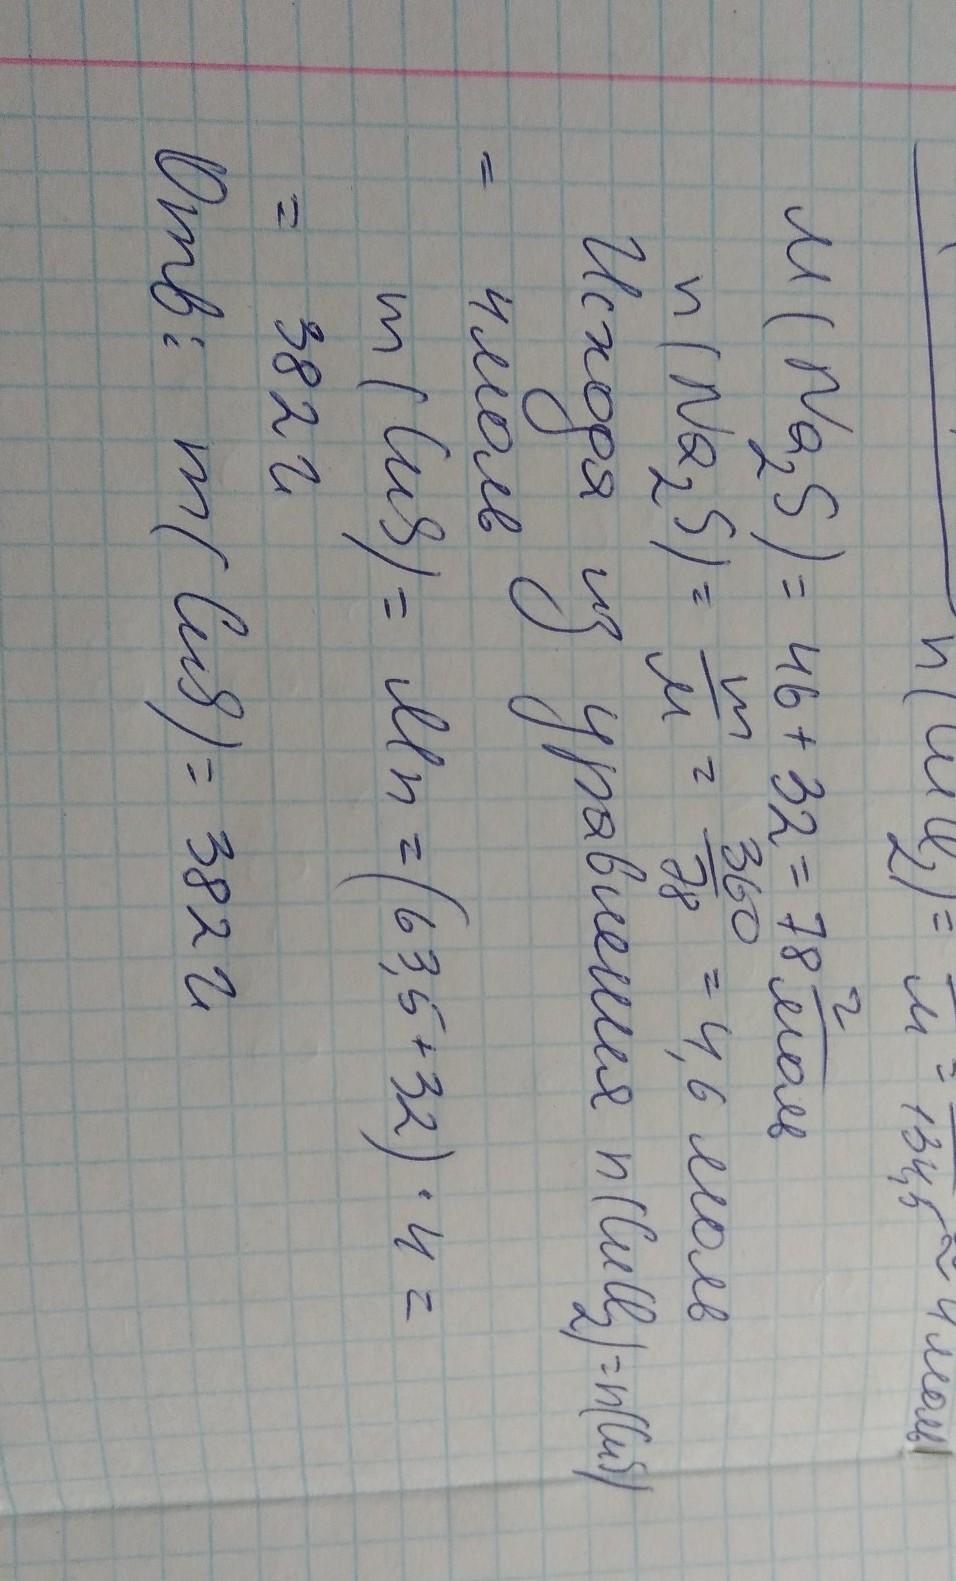 n(CuCl₂) = — M = 134,5 = 4 моль
M(Na₂S) = 46 + 32 = 78 г/моль
n(Na₂S) = m/M = 360/78 = 4,6 моль
Исходя из уравнения n(CuCl₂) = n(CuS)
= 4 моль
m(CuS) = Mn = (63,5 + 32) · 4 =
= 382 г
Отв: m(CuS) = 382 г